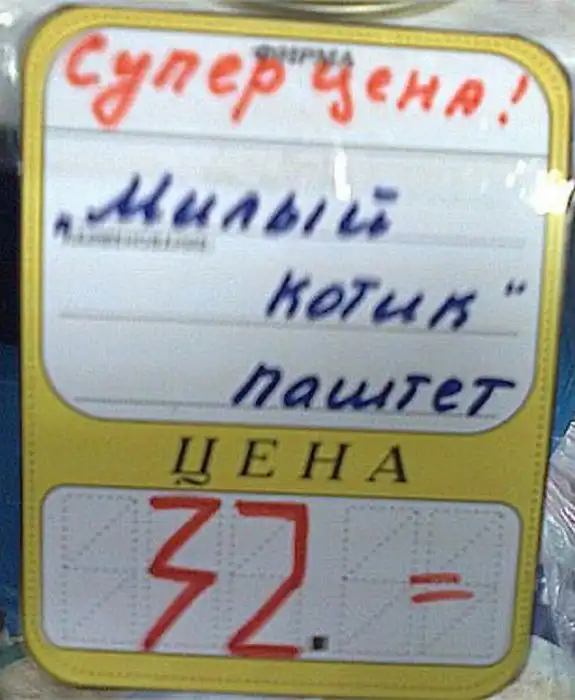 ФИРМА
Супер цена!
„Милый
НАИМЕНОВАНИЕ
котик"
паштет
ЦЕНА
32. =